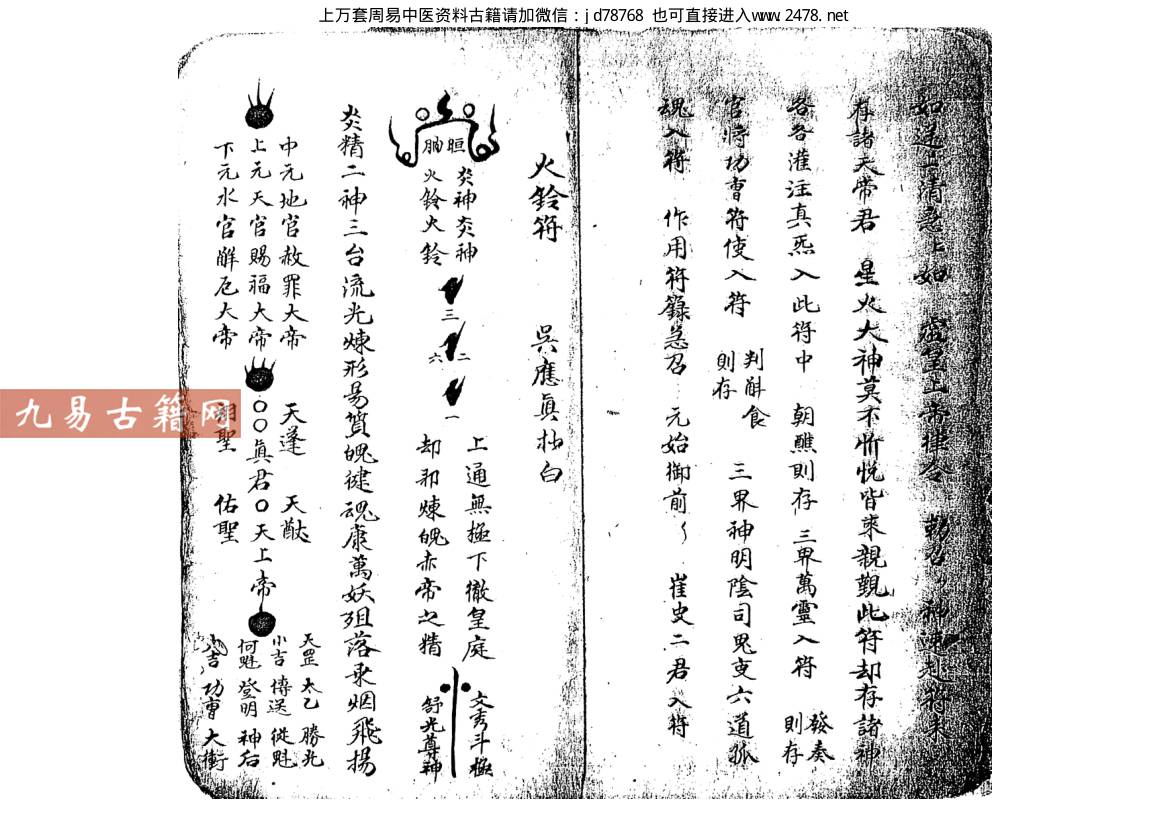 上万套周易中医资料古籍请加微信：jd78768 也可直接进入www.2478.net
如違上清急上如 皇上帝律令 勅召 神速赴符來
存諸天帝君 星火大神莫不忻悅皆來親覲此符却存諸神
各各灌注真炁入此符中 朝醮則存 三界萬靈入符 發奏則存
官將功曹符使入符 判斛食則存 三界神明陰司鬼吏六道孤
魂入符 作用符籙急召 元始御前 崔史二君入符
火鈴符 吳應真 白
炎神炎神
火鈴火鈴
三
二
六
一
上通無極下徹皇庭
却邪煉魄赤帝之精
文秀斗極
舒光尊神
炎精二神三台流光煉形易質魄健魂康萬妖殂落乘烟飛揚
中元地官赦罪大帝
上元天官賜福大帝
下元水官解厄大帝
天蓬 天猷
〇〇真君〇天上帝
翊聖 佑聖
天罡 太乙 勝光
小吉 傳送 從魁
何魁 登明 神后
功曹 大衝
九易古籍网